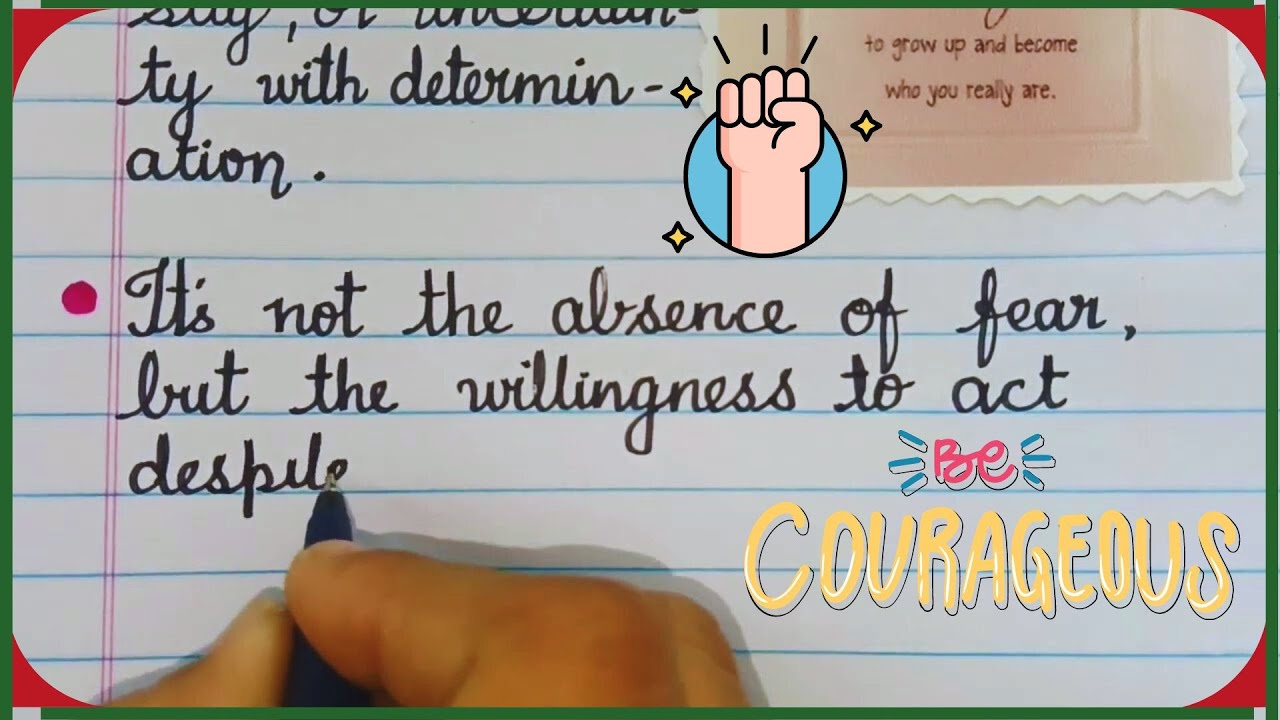 sity, or uncertain-
ty with determin-
ation.
to grow up and become
who you really are.
It's not the absence of fear,
but the willingness to act
despite
BE
COURAGEOUS